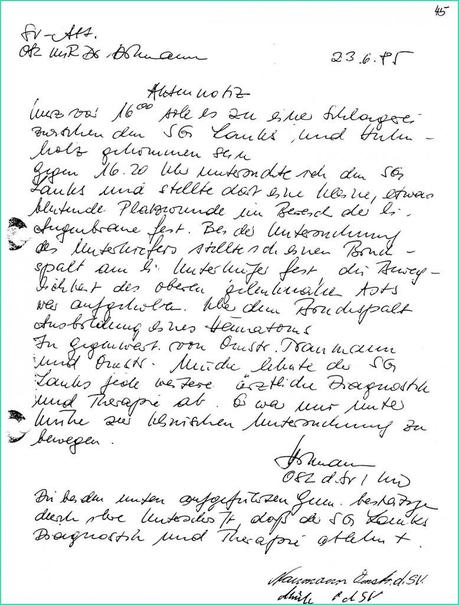 45
SV-Abt.
OSL MR Dr. Hohmann 23.6.85
Aktennotiz
Kurz vor 16⁰⁰ solle es zu einer Schlägerei
zwischen dem SG Lauks und
holz gekommen sein
Gegen 16.20 Uhr untersuchte ich den SG
Lauks und stellte dort eine kleine, etwas
blutende Platzwunde im Bereich der li.
Augenbraue fest. Bei der Untersuchung
des Unterkiefers stellte ich einen Bruch-
spalt am li Unterkiefer fest die Beweg-
lichkeit des oberen Asts
war aufgehoben. Über dem Bruchspalt
Ausbildung eines Hämatoms
In Gegenwart von Omstr. Naumann
und Omstr. Mücke lehnte der SG
Lauks jede weitere ärztliche Diagnostik
und Therapie ab. Er war nur unter
Mühe zur klinischen Untersuchung zu
bewegen.
Hohmann
OSL d. SV
Die beiden unten aufgeführten Gen. bestätigen
durch ihre Unterschrift, daß der SG Lauks
Diagnostik und Therapie ablehnt.
Naumann Omstr. d. SV
Mücke d. SV